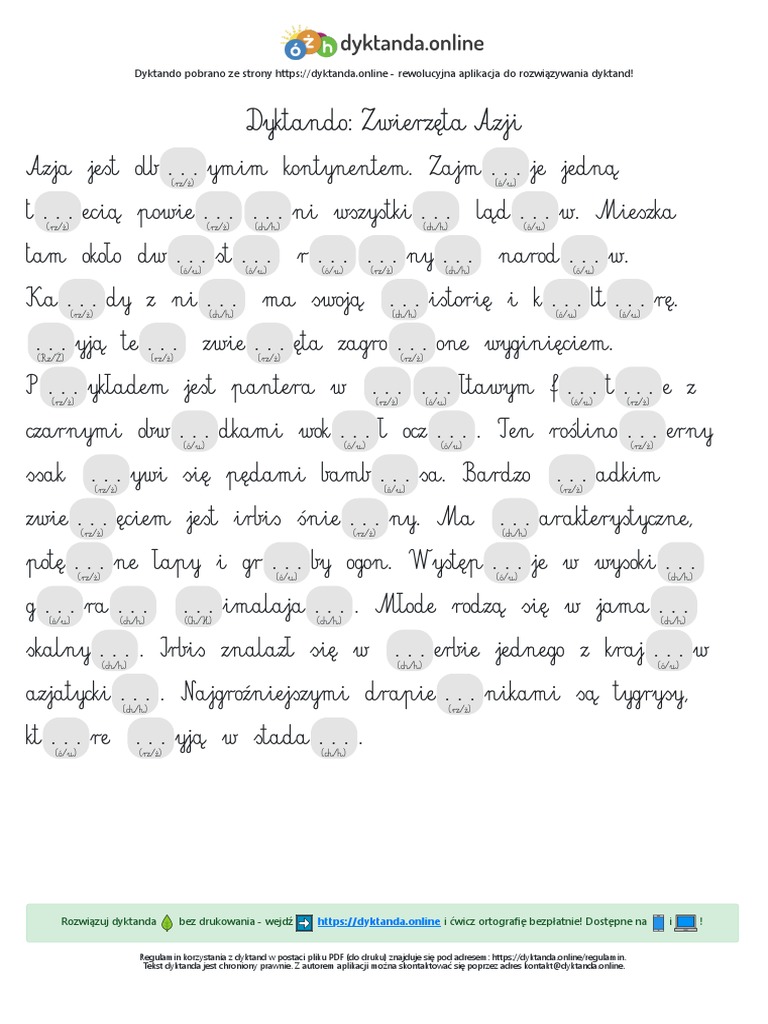 óżh dyktanda.online
Dyktando pobrano ze strony https://dyktanda.online - rewolucyjna aplikacja do rozwiązywania dyktand!
Dyktando: Zwierzęta Azji
Azja jest olb...(rz/ż)ymim kontynentem. Zajm...(ó/u)je jedną
t...(rz/ż)ecią powie...(rz/ż)...(ch/h)ni wszystki...(ch/h) ląd...(ó/u)w. Mieszka
tam około dw...(ó/u)st...(ó/u) r...(ó/u)...(rz/ż)ny...(ch/h) narod...(ó/u)w.
Ka...(rz/ż)dy z ni...(ch/h) ma swoją ...(ch/h)istorię i k...(ó/u)lt...(ó/u)rę.
...(Rz/Ż)yją te...(rz/ż) zwie...(rz/ż)ęta zagro...(rz/ż)one wyginięciem.
P...(rz/ż)ykładem jest pantera w ...(rz/ż)...(ó/u)łtawym f...(ó/u)t...(rz/ż)e z
czarnymi obw...(ó/u)dkami wok...(ó/u)ł ocz...(ó/u). Ten roślino...(rz/ż)erny
ssak ...(rz/ż)ywi się pędami bamb...(ó/u)sa. Bardzo ...(rz/ż)adkim
zwie...(rz/ż)ęciem jest irbis śnie...(rz/ż)ny. Ma ...(ch/h)arakterystyczne,
potę...(rz/ż)ne łapy i gr...(ó/u)by ogon. Występ...(ó/u)je w wysoki...(ch/h)
g...(ó/u)ra...(ch/h) ...(Ch/H)imalaja...(ch/h). Młode rodzą się w jama...(ch/h)
skalny...(ch/h). Irbis znalazł się w ...(ch/h)erbie jednego z kraj...(ó/u)w
azjatycki...(ch/h). Najgroźniejszymi drapie...(rz/ż)nikami są tygrysy,
kt...(ó/u)re ...(rz/ż)yją w stada...(ch/h).
Rozwiązuj dyktanda bez drukowania - wejdź https://dyktanda.online i ćwicz ortografię bezpłatnie! Dostępne na i !
Regulamin korzystania z dyktand w postaci pliku PDF (do druku) znajduje się pod adresem: https://dyktanda.online/regulamin.
Tekst dyktanda jest chroniony prawnie. Z autorem aplikacji można skontaktować się poprzez adres kontakt@dyktanda.online.